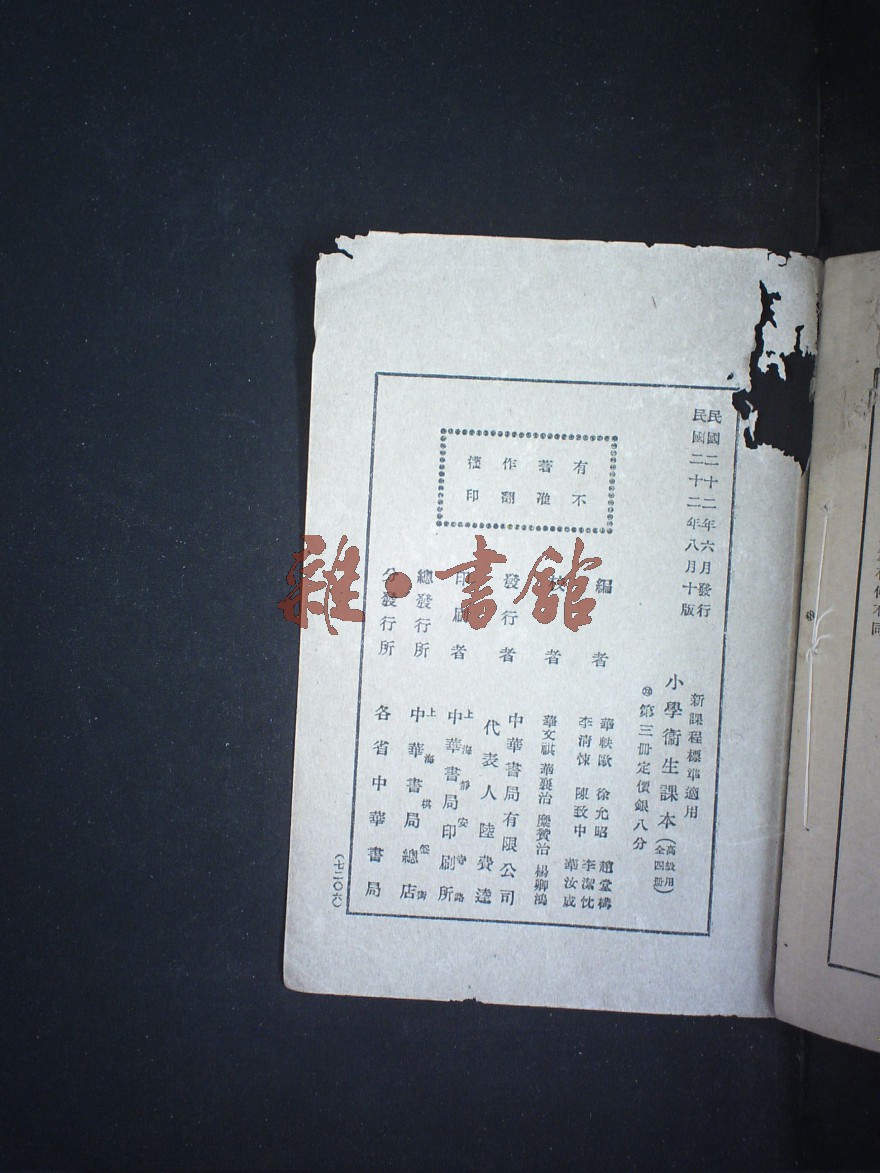 民國二十二年六月發行
民國二十二年八月十版
有著作權
不准翻印
新課程標準適用
小學衞生課本(高級用 全四冊)
第三冊定價銀八分
編者
華軼歐 徐允昭 趙堂構
李清悚 陳致中 李潔忱
華汝成
者
華文祺 華襄治 糜贊治 楊卿鴻
發行者
中華書局有限公司
代表人 陸費逵
印刷者
上海靜安寺路
中華書局印刷所
總發行所
上海棋盤街
中華書局總店
分發行所
各省中華書局
(七二〇六)
雜·書館